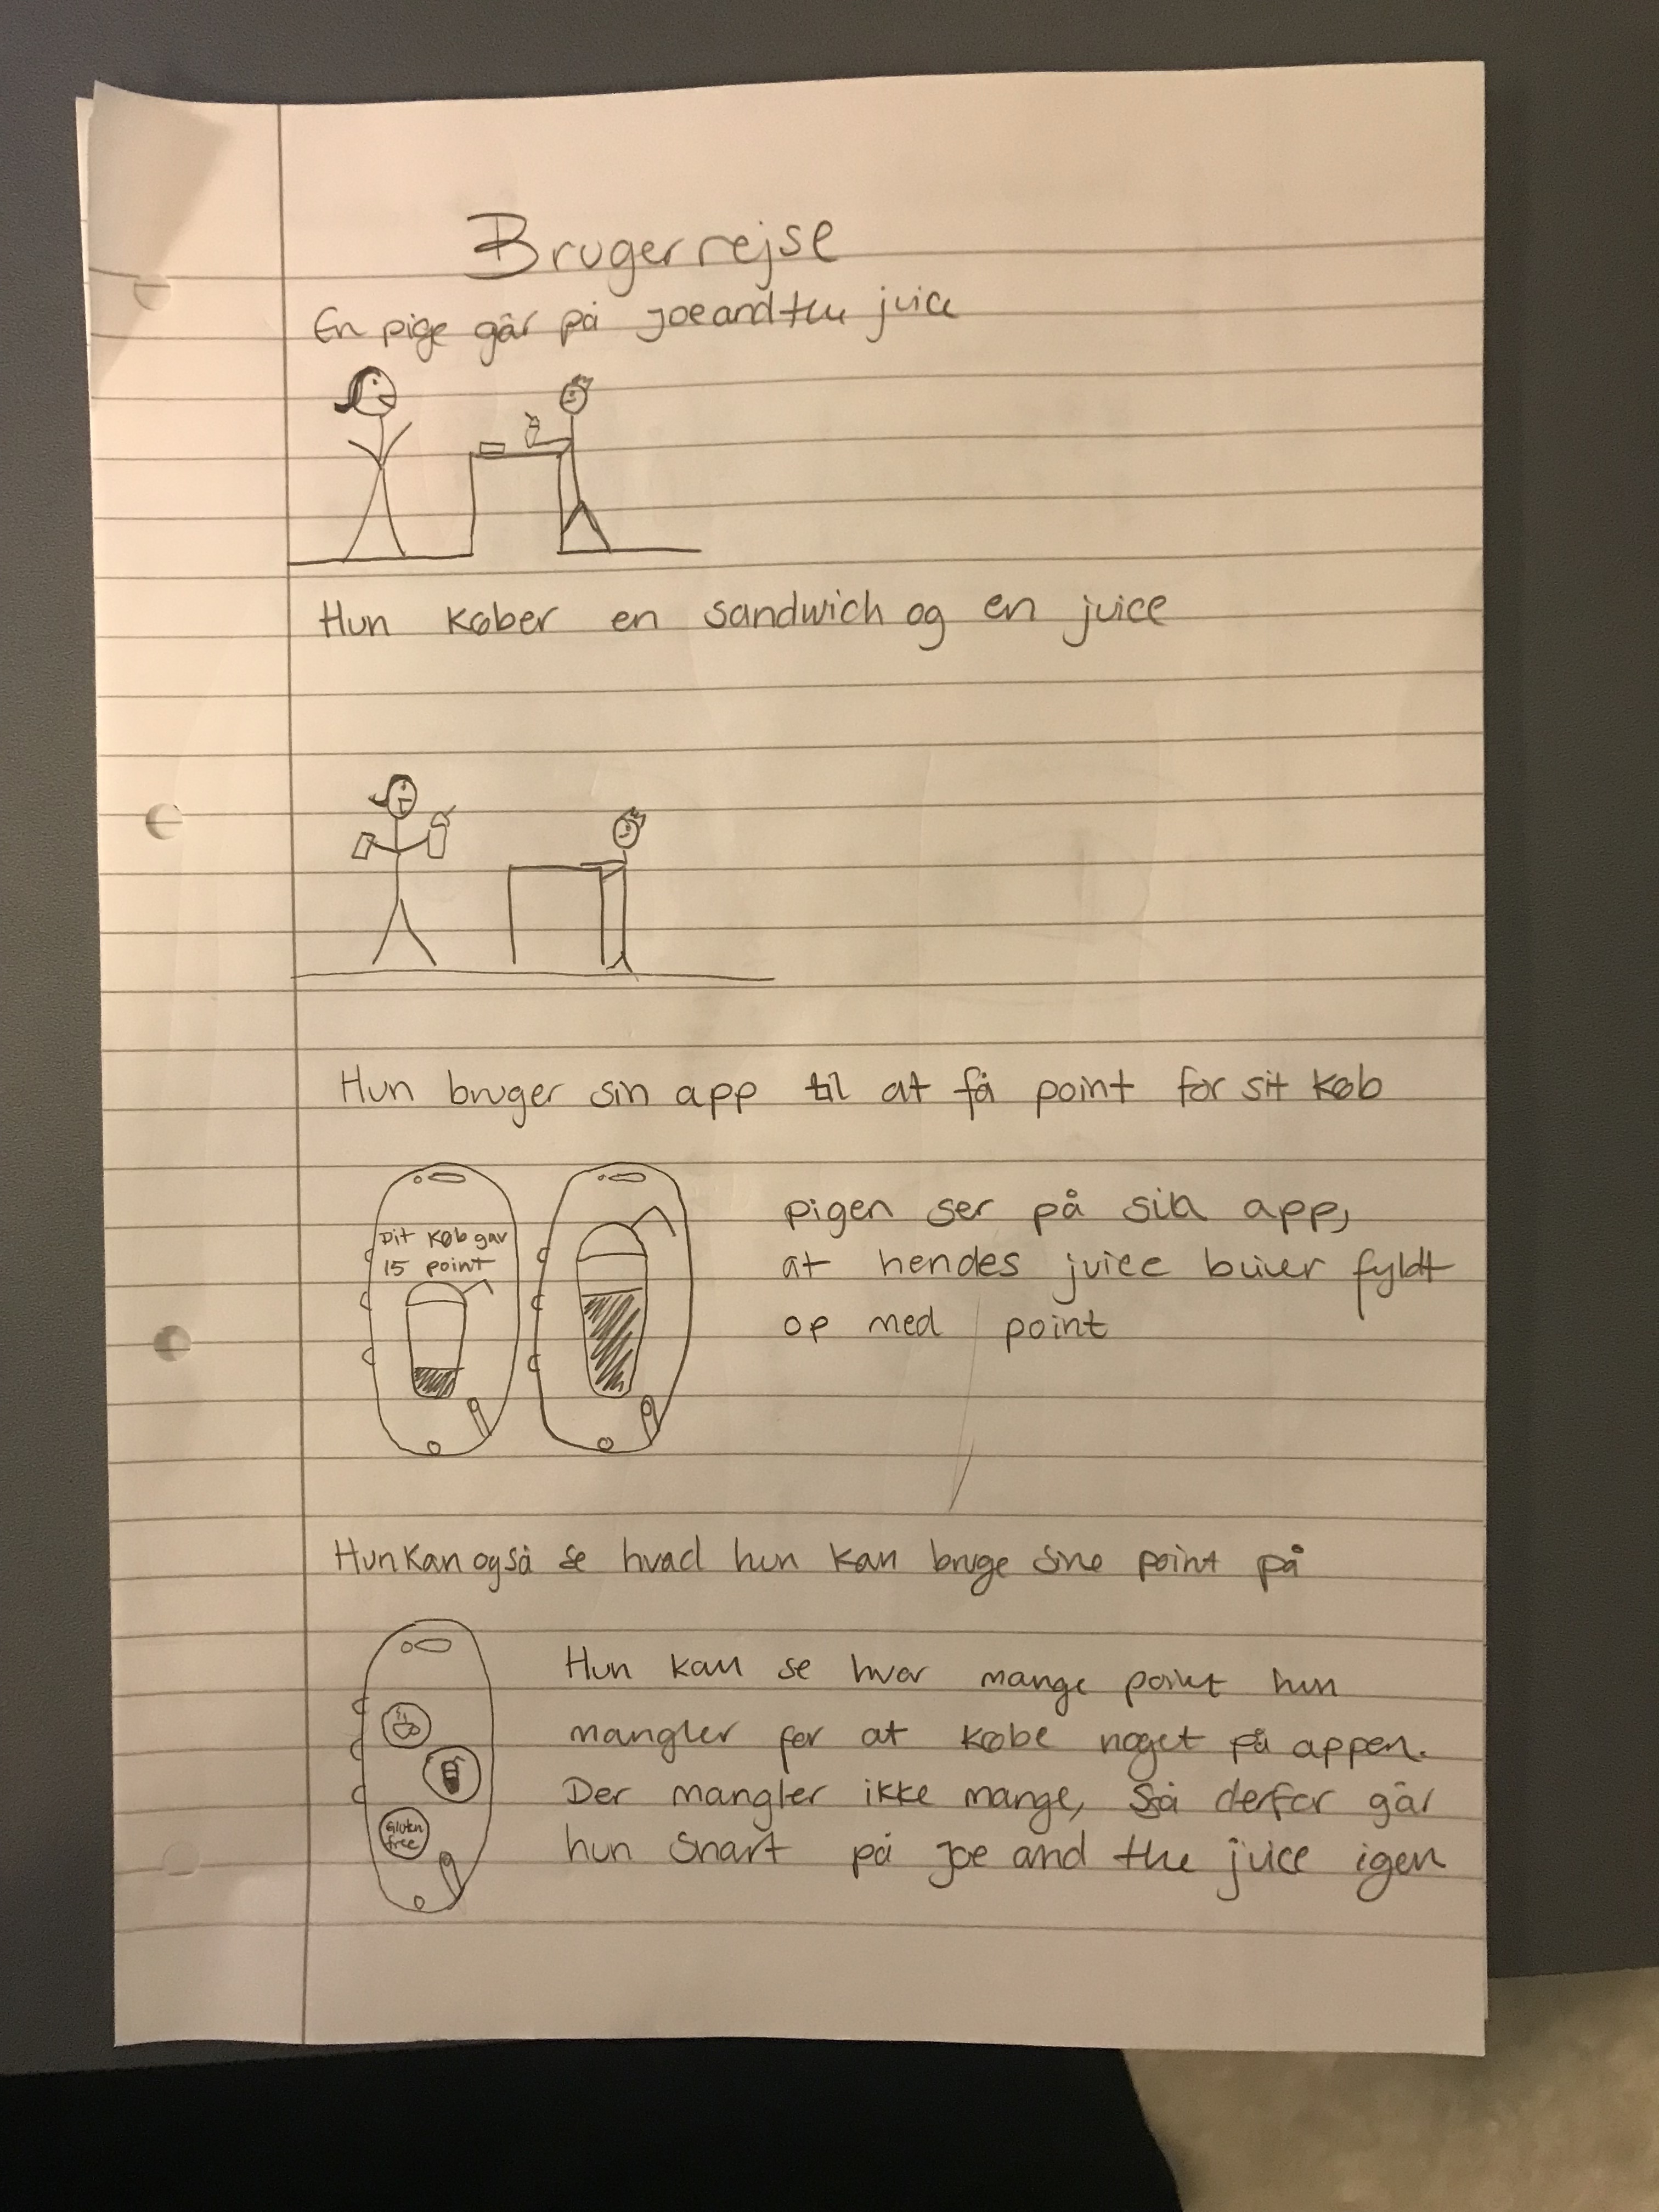 Brugerrejse
En pige går på joeandthe juice
Hun køber en sandwich og en juice
Hun bruger sin app til at få point for sit køb
Dit køb gav
15 point
pigen ser på sin app,
at hendes juice bliver fyldt
op med point
Hun kan også se hvad hun kan bruge sine point på
Hun kan se hvor mange point hun
mangler for at købe noget på appen.
Der mangler ikke mange, så derfor går
hun snart på joe and the juice igen
Gluten
free